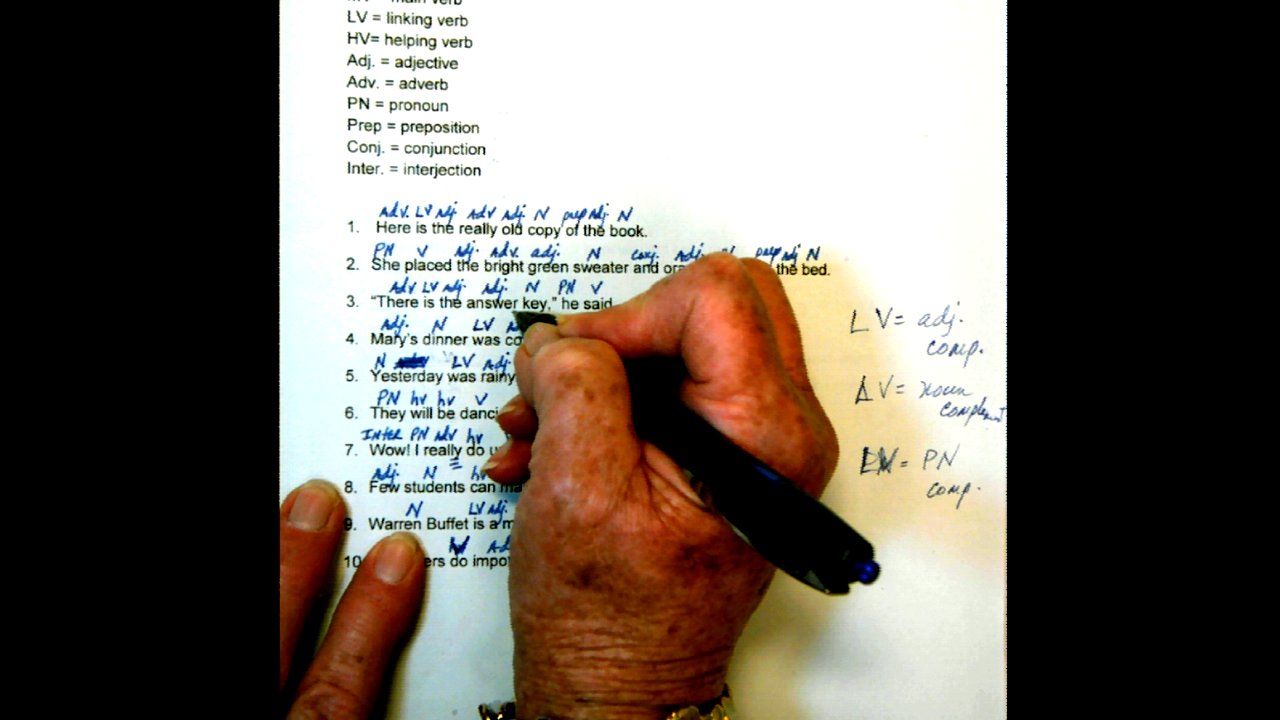 LV = linking verb
HV= helping verb
Adj. = adjective
Adv. = adverb
PN = pronoun
Prep = preposition
Conj. = conjunction
Inter. = interjection
Adv. LV Adj. Adv Adj. N prep Adj. N
1. Here is the really old copy of the book.
PN V Adj. Adv. adj. N conj. Adj. prep adj N
2. She placed the bright green sweater and the bed.
Adv LV adj adj. N PN V
3. "There is the answer key," he said
Adj. N LV
4. Mary's dinner was
N LV Adj.
5. Yesterday was rainy
PN hv hv V
6. They will be
Inter PN adv hv
7. Wow! I really do
Adj. N
8. Few students can
N LV Adj.
9. Warren Buffet is a
10 do
LV = adj.
comp.
LV = noun
complement
= PN
comp.